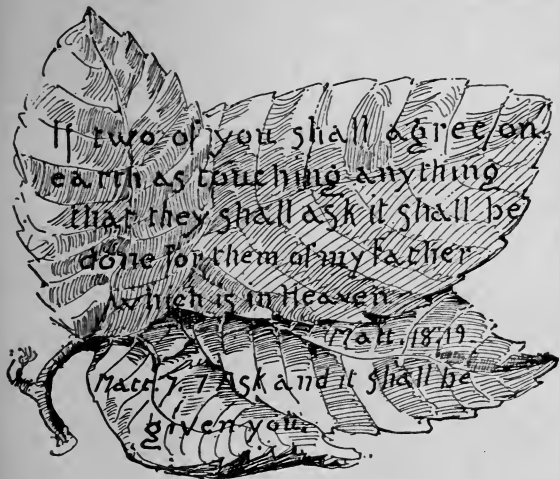 If two of you shall agree on
earth as touching anything
that they shall ask it shall be
done for them of my Father
which is in Heaven
Matt. 18,19.
Matt. 7-7 Ask and it shall be
given you.